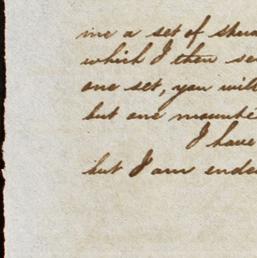 me a set of
which I then
one set, you will
but one
I have
but I am